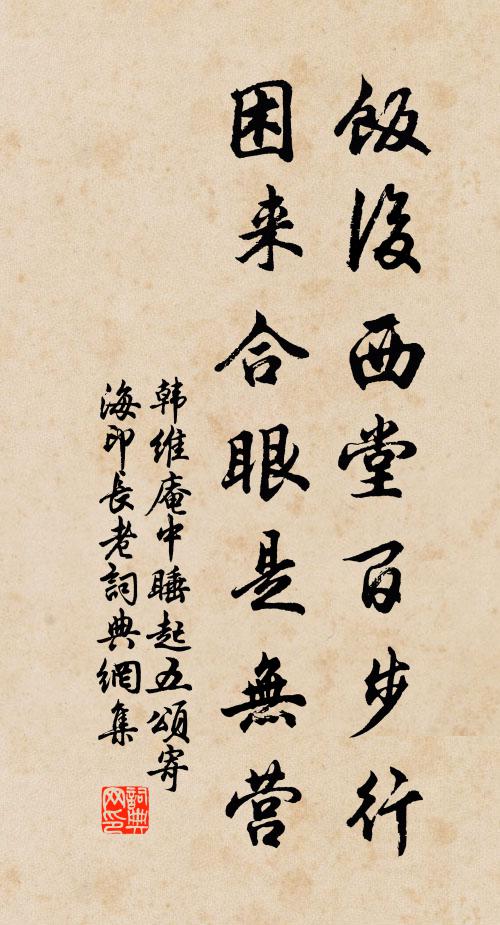 飯後西堂百步行
困来合眼是無营
韩維庵中睡起五頌寄
海印長老詞典網集
詞典
网印